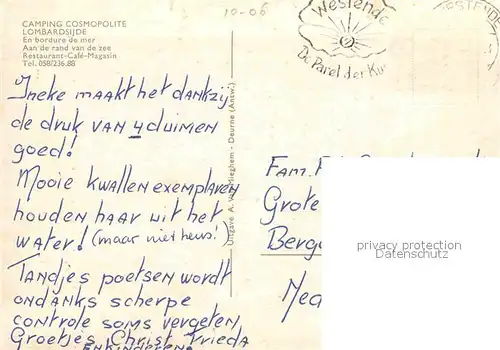 CAMPING COSMOPOLITE
LOMBARDSIJDE
En bordure de mer
Aan de rand van de zee
Restaurant-Café-Magasin
Tel. 058/236.88
10-06
Westende
De Parel der
WESTENDE
Ineke maakt het dankzij
de druk van 4 duimen
goed!
Mooie kwallenexemplaren
houden haar uit het
water! (maar niet heus!)
Tandjes poetsen wordt
ondanks scherpe
controle soms vergeten,
Groetjes, Christ, Frieda
EN KINDEREN
Uitgave A. - Deurne (Antw.)
Fam.
Grote
privacy protection
Datenschutz